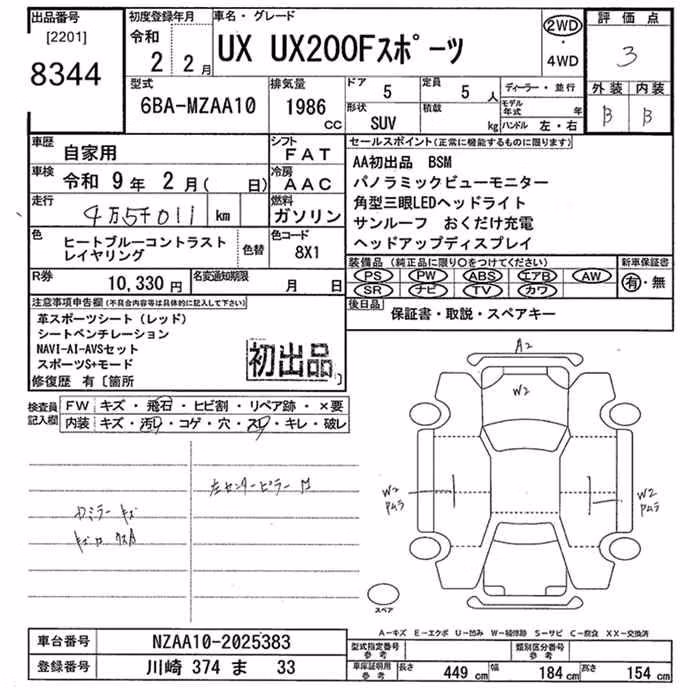 出品番号
[2201]
8344
初度登録年月
令和
2 2月
車名・グレード
UX UX200Fスポーツ
2WD
・
4WD
評価点
3
外装 内装
B B
型式
6BA-MZAA10
排気量
1986
CC
ドア 5
定員 5 人
形状 SUV
積載 kg
ディーラー・並行
モデル年式 年
ハンドル 左・右
車歴 自家用
シフト FAT
車検 令和 9年 2月( 日)
冷房 AAC
走行 4万5千011 km
燃料 ガソリン
色 ヒートブルーコントラスト
レイヤリング
色替
色コード 8X1
R券 10,330円
名変通知期限 月 日
セールスポイント(正常に機能するものに限ります)
AA初出品 BSM
パノラミックビューモニター
角型三眼LEDヘッドライト
サンルーフ おくだけ充電
ヘッドアップディスプレイ
装備品(純正品に限り○をつけてください)
PS PW ABS エアB AW
SR ナビ TV カワ
新車保証書
有・無
後日品 保証書・取説・スペアキー
注意事項申告欄(不具合内容等は具体的に記入して下さい)
革スポーツシート(レッド)
シートベンチレーション
NAVI-AI-AVSセット
スポーツS+モード
修復歴 有〔箇所
初出品
検査員
記入欄
FW キズ・飛石・ヒビ割・リペア跡・×要
内装 キズ・汚レ・コゲ・穴・スレ・キレ・破レ
左センターピラー
カミラー キズ
A2
W2
W2
アムラ
W2
アムラ
スペア
A-キズ E-エクボ U-凹み W-補修跡 S-サビ C-腐食 XX-交換済
車台番号 NZAA10-2025383
登録番号 川崎 374 ま 33
型式指定番号
参考
類別区分番号
参考
車庫証明用
参考
長さ 449 cm 幅 184 cm 高さ 154 cm